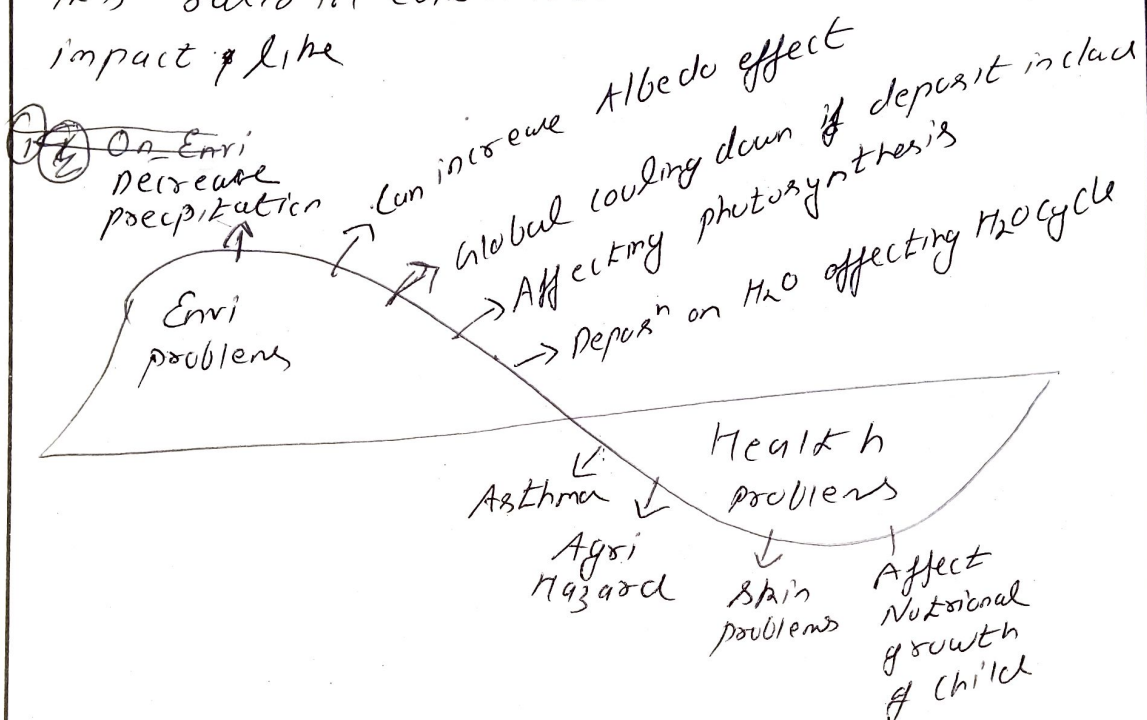 impact like
On Envi
Decrease
precpitation
Can increase Albedo effect
Global couling down if deposit in clad
Affecting photosynthesis
Deposⁿ on H2O affecting H2O cycle
Envi
problems
Health
problems
Asthma
Agri
Hazard
Skin
problems
Affect
Nutrional
growth
of Child